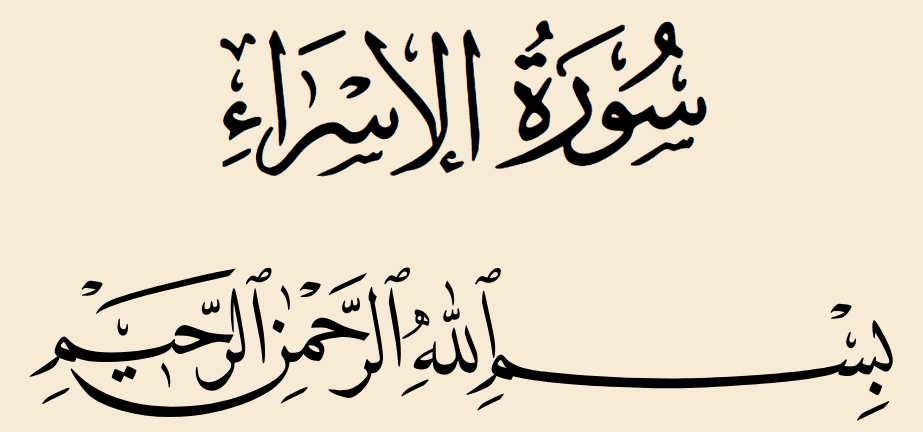 سُورَةُ الإِسْرَاءِ
بِسْمِ ٱللَّهِ ٱلرَّحْمَٰنِ ٱلرَّحِيمِ